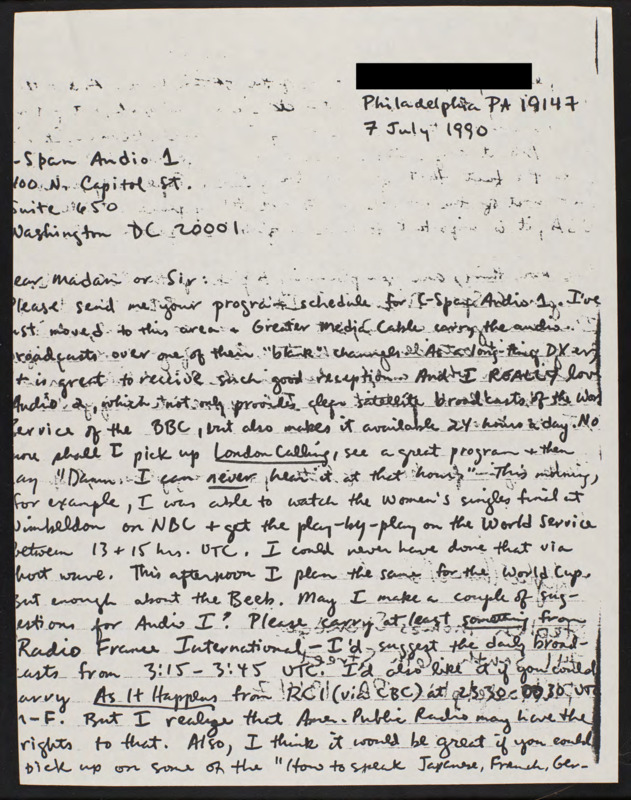 Philadelphia PA 19147
7 July 1990
-Span Audio 1
400 N. Capitol St.
Suite 650
Washington DC 20001
ear Madam or Sir:
Please send me your program schedule for C-Span Audio 1. I've
ust moved to this area + Greater Media Cable carry the audio
roadcasts over one of their "blank" channels. As a long-time DXer,
it is great to receive such good reception. And I REALLY love
Audio 2, which not only provides clear satellite broadcasts of the World
ervice of the BBC, but also makes it available 24 hours a day. No
ore shall I pick up London Calling, see a great program + then
ay "Damn. I can never hear it at that hour." This morning,
for example, I was able to watch the Women's singles final at
Wimbeldon on NBC + get the play-by-play on the World Service
between 13 + 15 hrs. UTC. I could never have done that via
hort wave. This afternoon I plan the same for the World Cup.
But enough about the Beeb. May I make a couple of sug-
estions for Audio I? Please carry at least something from
Radio France International - I'd suggest the daily broad-
asts from 3:15 - 3:45 UTC. I'd also like it if you could
arry As It Happens from RCI (via CBC) at 23:30-0030 UTC
M-F. But I realize that Amer. Public Radio may have the
rights to that. Also, I think it would be great if you could
pick up on some of the "How to speak Japanese, French, Ger-